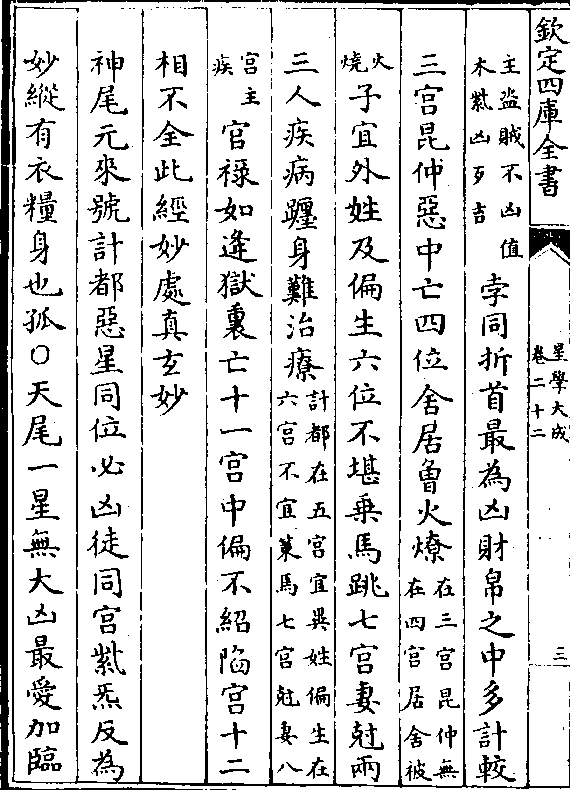 欽定四庫全書
星學大成
卷二十二
三
主盜賊不凶值
木紫凶歹吉
孛同折首最為凶財帛之中多計較
三宮昆仲惡中亡四位舍居魯火燎
在三宮昆仲無
在四宮居舍被
火
燒
子宜外姓及偏生六位不堪乗馬跳七宮妻尅兩
三人疾病躔身難治療
計都在五宮宜異姓偏生在
六宮不宜乗馬七宮尅妻八
宮主
疾
官禄如逢獄裏亡十一宮中偏不紹陷宮十二
相不全此經妙處真玄妙
神尾元來號計都惡星同位必凶徒同宮紫炁反為
妙縱有衣糧身也孤○天尾一星無大凶最愛加臨